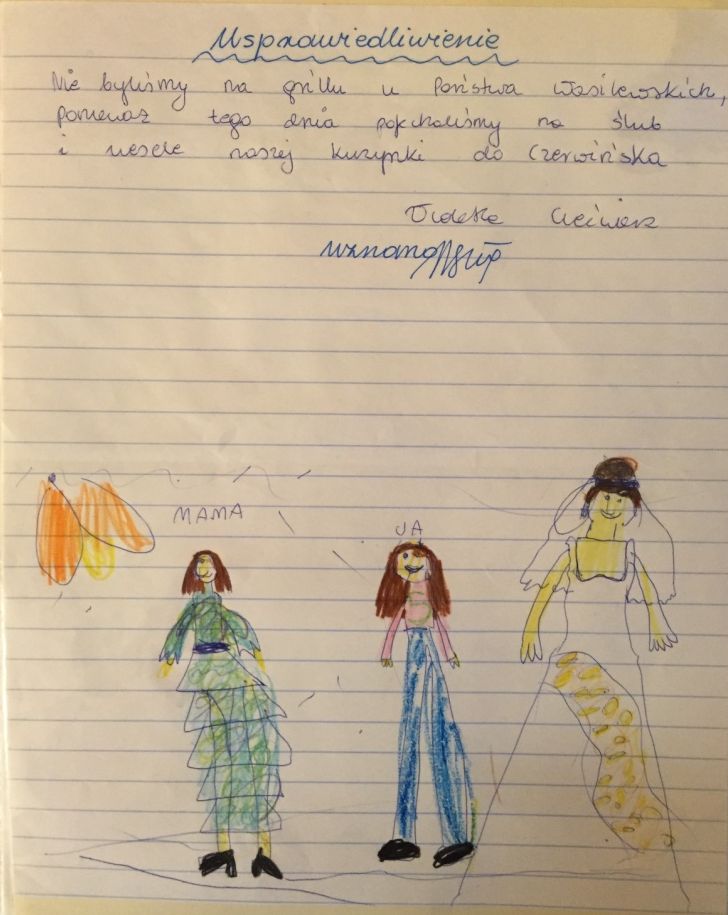 Usprawiedliwienie
Nie byliśmy na grillu u Państwa Wasilewskich,
ponieważ tego dnia pojechaliśmy na ślub
i wesele naszej kuzynki do Czerwińska
uznano
MAMA
JA